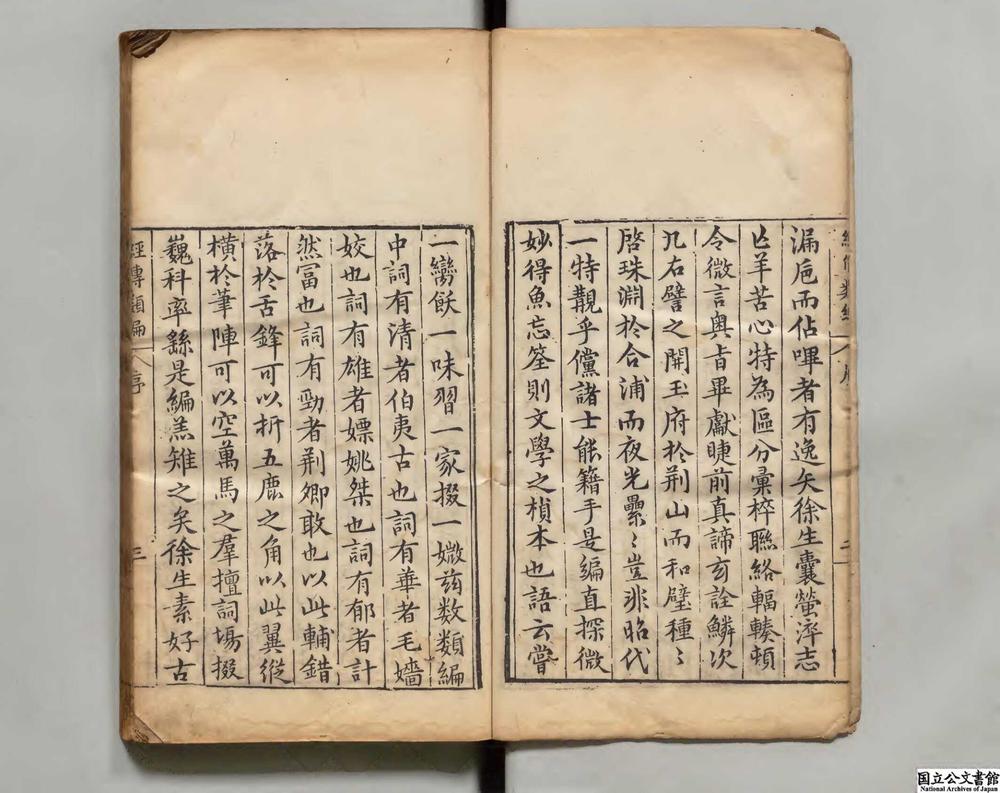 漏巵而佔嗶者有逸矣徐生囊螢濟志
亡羊苦心特為區分彙梓聯絡輻輳頓
令微言奧旨畢獻睫前真諦玄詮鱗次
几右譬之開玉府於荆山而和璧種〻
啓珠淵於合浦而夜光纍〻豈非昭代
一特覯乎儻諸士能籍手是編直探微
妙得魚忘筌則文學之楨本也語云嘗
一臠飫一味習一家掇一媺茲数類編
中詞有清者伯夷古也詞有華者毛嬙
姣也詞有雄者嫖姚桀也詞有郁者計
然冨也詞有勁者荆卿敢也以此輔錯
落於舌鋒可以折五鹿之角以此翼縱
橫於筆陣可以空萬馬之羣擅詞塲掇
巍科率繇是編羔雉之矣徐生素好古
經傳類編
序
三
国立公文書館
National Archives of Japan